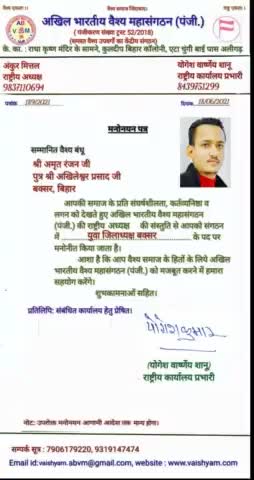 वैश्य एकता!!
वैश्य समाज जिंदाबाद।
अखिल भारतीय वैश्य महासंगठन (पंजी.)
( पंजीकरण संख्या ट्रस्ट 52/2018)
(समस्त वैश्य उपवर्गो का केंद्रीय संगठन)
के. का. : राधा कृष्ण मंदिर के सामने, कुलदीप बिहार कॉलोनी, एटा चुंगी बाई पास अलीगढ़
अंकुर मित्तल
राष्ट्रीय अध्यक्ष
9837110694
योगेश वार्ष्णेय शानू
राष्ट्रीय कार्यालय प्रभारी
8439751299
पत्रांक 119/2021
दिनांक 18/06/2021
मनोनयन पत्र
सम्मानित वैश्य बंधू
श्री अमृत रंजन जी
पुत्र श्री अखिलेश्वर प्रसाद जी
बक्सर, बिहार
आपकी समाज के प्रति संघर्षशीलता, कर्तव्यनिष्ठा व
लगन को देखते हुए अखिल भारतीय वैश्य महासंगठन
(पंजी.) की राष्ट्रीय अध्यक्ष की संस्तुति से आपको संगठन
में युवा जिलाध्यक्ष बक्सर के पद पर
मनोनीत किया जाता है।
आशा है कि आप वैश्य समाज के हितों के लिये अखिल
भारतीय वैश्य महासंगठन (पंजी.) को मजबूत करने में हमारा
सहयोग करेंगे।
शुभकामनाओं सहित।
प्रतिलिपि: संबंधित कार्यालय हेतु प्रेषित।
योगेश कुमार
(योगेश वार्ष्णेय शानू)
राष्ट्रीय कार्यालय प्रभारी
नोट: उपरोक्त मनोनयन आगामी आदेश तक मान्य होगा।
सम्पर्क सूत्र : 7906179220, 9319147474
Email id:vaishyam.abvm@gmail.com, website : www.vaishyam.com